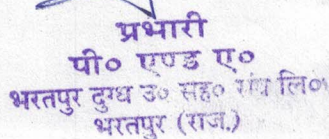 प्रभारी
पी० एण्ड ए०
भरतपुर दुग्ध उ० सह० संघ लि०
भरतपुर (राज.)